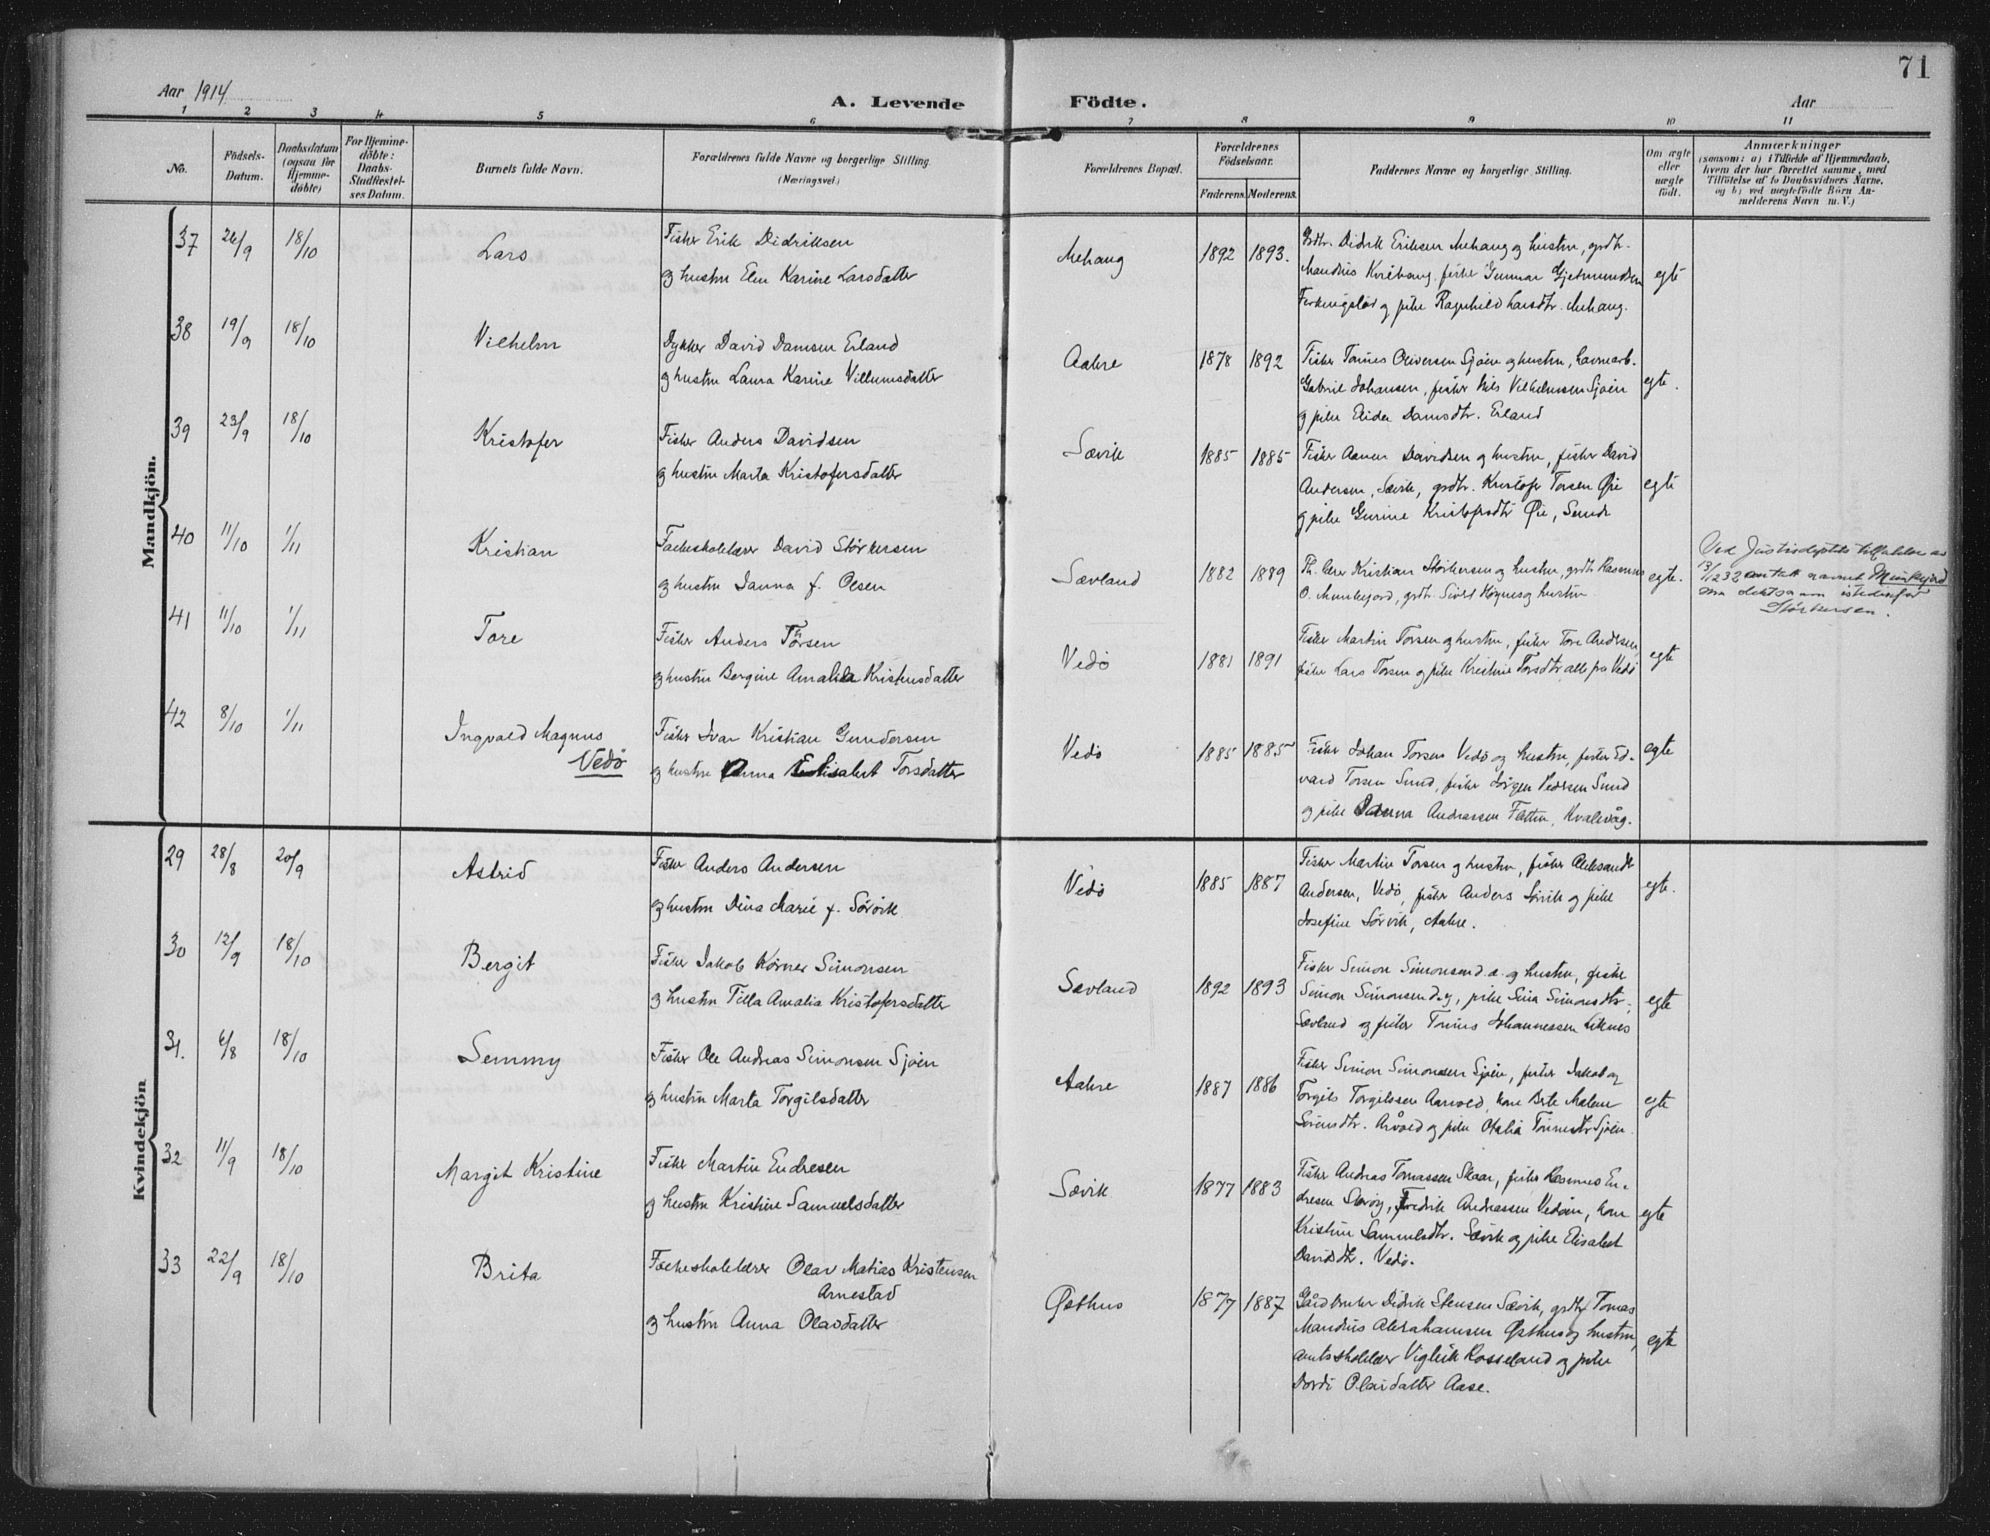 71
Aar 1914
A. Levende
Födte.
Aar
1 2 3 4 5 6 7 8 9 10 11
No.
Födsels-
Datum.
Daabsdatum
(ogsaa for
Hjemme-
döbte)
For Hjemme-
döbte:
Daabs-
Stadfæstel-
ses Datum.
Barnets fulde Navn.
Forældrenes fulde Navne og borgerlige Stilling.
(Næringsvei.)
Forældrenes Bopæl.
Forældrenes
Födselsaar.
Faderens. Moderens.
Faddernes Navne og borgerlige Stilling.
Om ægte
eller
uægte
födt.
Anmærkninger
(saasom: a) i Tilfælde af Hjemmedaab,
hvem der har forrettet samme, med
Tilföielse af to Daabsvidners Navne,
og b) ved uægtefödte Börn An-
melderens Navn m. V.)
Mandkjön.
37 26/9 18/10 Lars
Fisker Erik Didriksen
og hustru Elen Karine Larsdatter
Mehaug 1892 1893.
Grdbr. Didrik Eriksen Mehaug og hustru, grdbr.
Mandius Kvilhaug, fisker Gunnar Gjetmundsen
Ferkingstad og pike Ragnhild Larsdtr. Mehaug.
egte
38 19/9 18/10 Vilhelm
Dykker David Damsen Erland
og hustru Laura Karine Villumsdatter
Aakre 1878 1892
Fisker Tønnes Oliversen Sjøen og hustru, havnearb.
Gabriel Johansen, fisker Nils Vilhelmsen Sjøen
og pike Elida Damsdtr. Erland
egte.
39 23/9 18/10 Kristofer
Fisker Anders Davidsen
og hustru Marta Kristofersdatter
Sævik 1885 1885
Fisker Aanen Davidsen og hustru, fisker David
Andersen, Sævik, grdbr. Kristofer Torsen Øie
og pike Gurine Kristofersdtr Øie, Sande
egte
40 11/10 1/11 Kristian
Folkeskolelærer David Størkersen
og hustru Janna f. Olsen
Sævland 1882 1889
Th. lærer Kristian Størkersen og hustru, grdbr Rasmus
O. Munkejord, grdbr. Sivert Høynes og hustru
egte.
Ved Justisdeptets tillatelse av
13/12 32 antatt navnet Munkejord
som slektsnavn istedenfor
Størkersen.
41 11/10 1/11 Tore
Fisker Anders Torsen
og hustru Bergine Amalia Kristensdatter
Vedø 1881 1891
Fisker Martin Torsen og hustru, fisker Tore Andersen,
fisker Lars Torsen og pike Kristine Torsdtr, alle fra Vedø
egte
42 8/10 1/11 Ingvald Magnus
Vedø
Fisker Ivar Kristian Gundersen
og hustru Anna Elisabet Torsdatter
Vedø 1885 1885
Fisker Johan Torsen Vedø og hustru, fisker Ed-
vard Torsen Sund, fisker Jørgen Pedersen Sund
og pike Danna Andreassen Fløtten, Kvalevåg.
egte
Kvindekjön
29 28/8 20/9 Astrid
Fisker Anders Andersen
og hustru Dina Marie f. Sørvik
Vedø 1885 1887
Fisker Martin Torsen og hustru, fisker Aleksander
Andersen, Vedø, fisker Anders Sørvik og pike
Josefine Sørvik, Aakre.
egte.
30 12/9 18/10 Bergit
Fisker Jakob Kørner Simonsen
og hustru Tilla Amalia Kristofersdatter
Sævland 1892 1893
Fisker Simon Simonsen d. æ. og hustru, fisker
Simon Simonsen d. y., pike Sina Simonsdtr.
Sævland og fisker Tønnes Johannessen Liknes
egte
31. 6/8 18/10 Semmy
Fisker Ole Andreas Simonsen Sjøen
og hustru Marta Torgilsdatter
Aakre 1887 1886
Fisker Simon Simonsen Sjøen, fisker Jakob og
Torgils Torgilssen Aarvold, kone Berte Malene
Sørensdtr. Årvold og pike Otalia Tønnesdtr Sjøen
egte
32 11/9 18/10 Margit Kristine
Fisker Martin Endresen
og hustru Kristine Samuelsdatter
Sævik 1877 1883
Fisker Andreas Tomassen Skaar, fisker Rasmus En-
dresen Størøy, Fredrik Andreassen Vedøen, kone
Kristine Samuelsdtr. Sævik og pike Elisabet
Davidsdtr. Vedø.
egte
33 22/9 18/10 Brita
Folkeskolelærer Olav Matias Kristensen
Arnestad
og hustru Anna Olavsdatter
Østhus 1877 1887
Gårdbruker Didrik Stensen Sævik, grdbr Tomas
Mandius Abrahamsen Østhus og hustru,
amtsskolelær Vigleik Rosseland og pike
Dordi Olavsdatter Aase.
egte